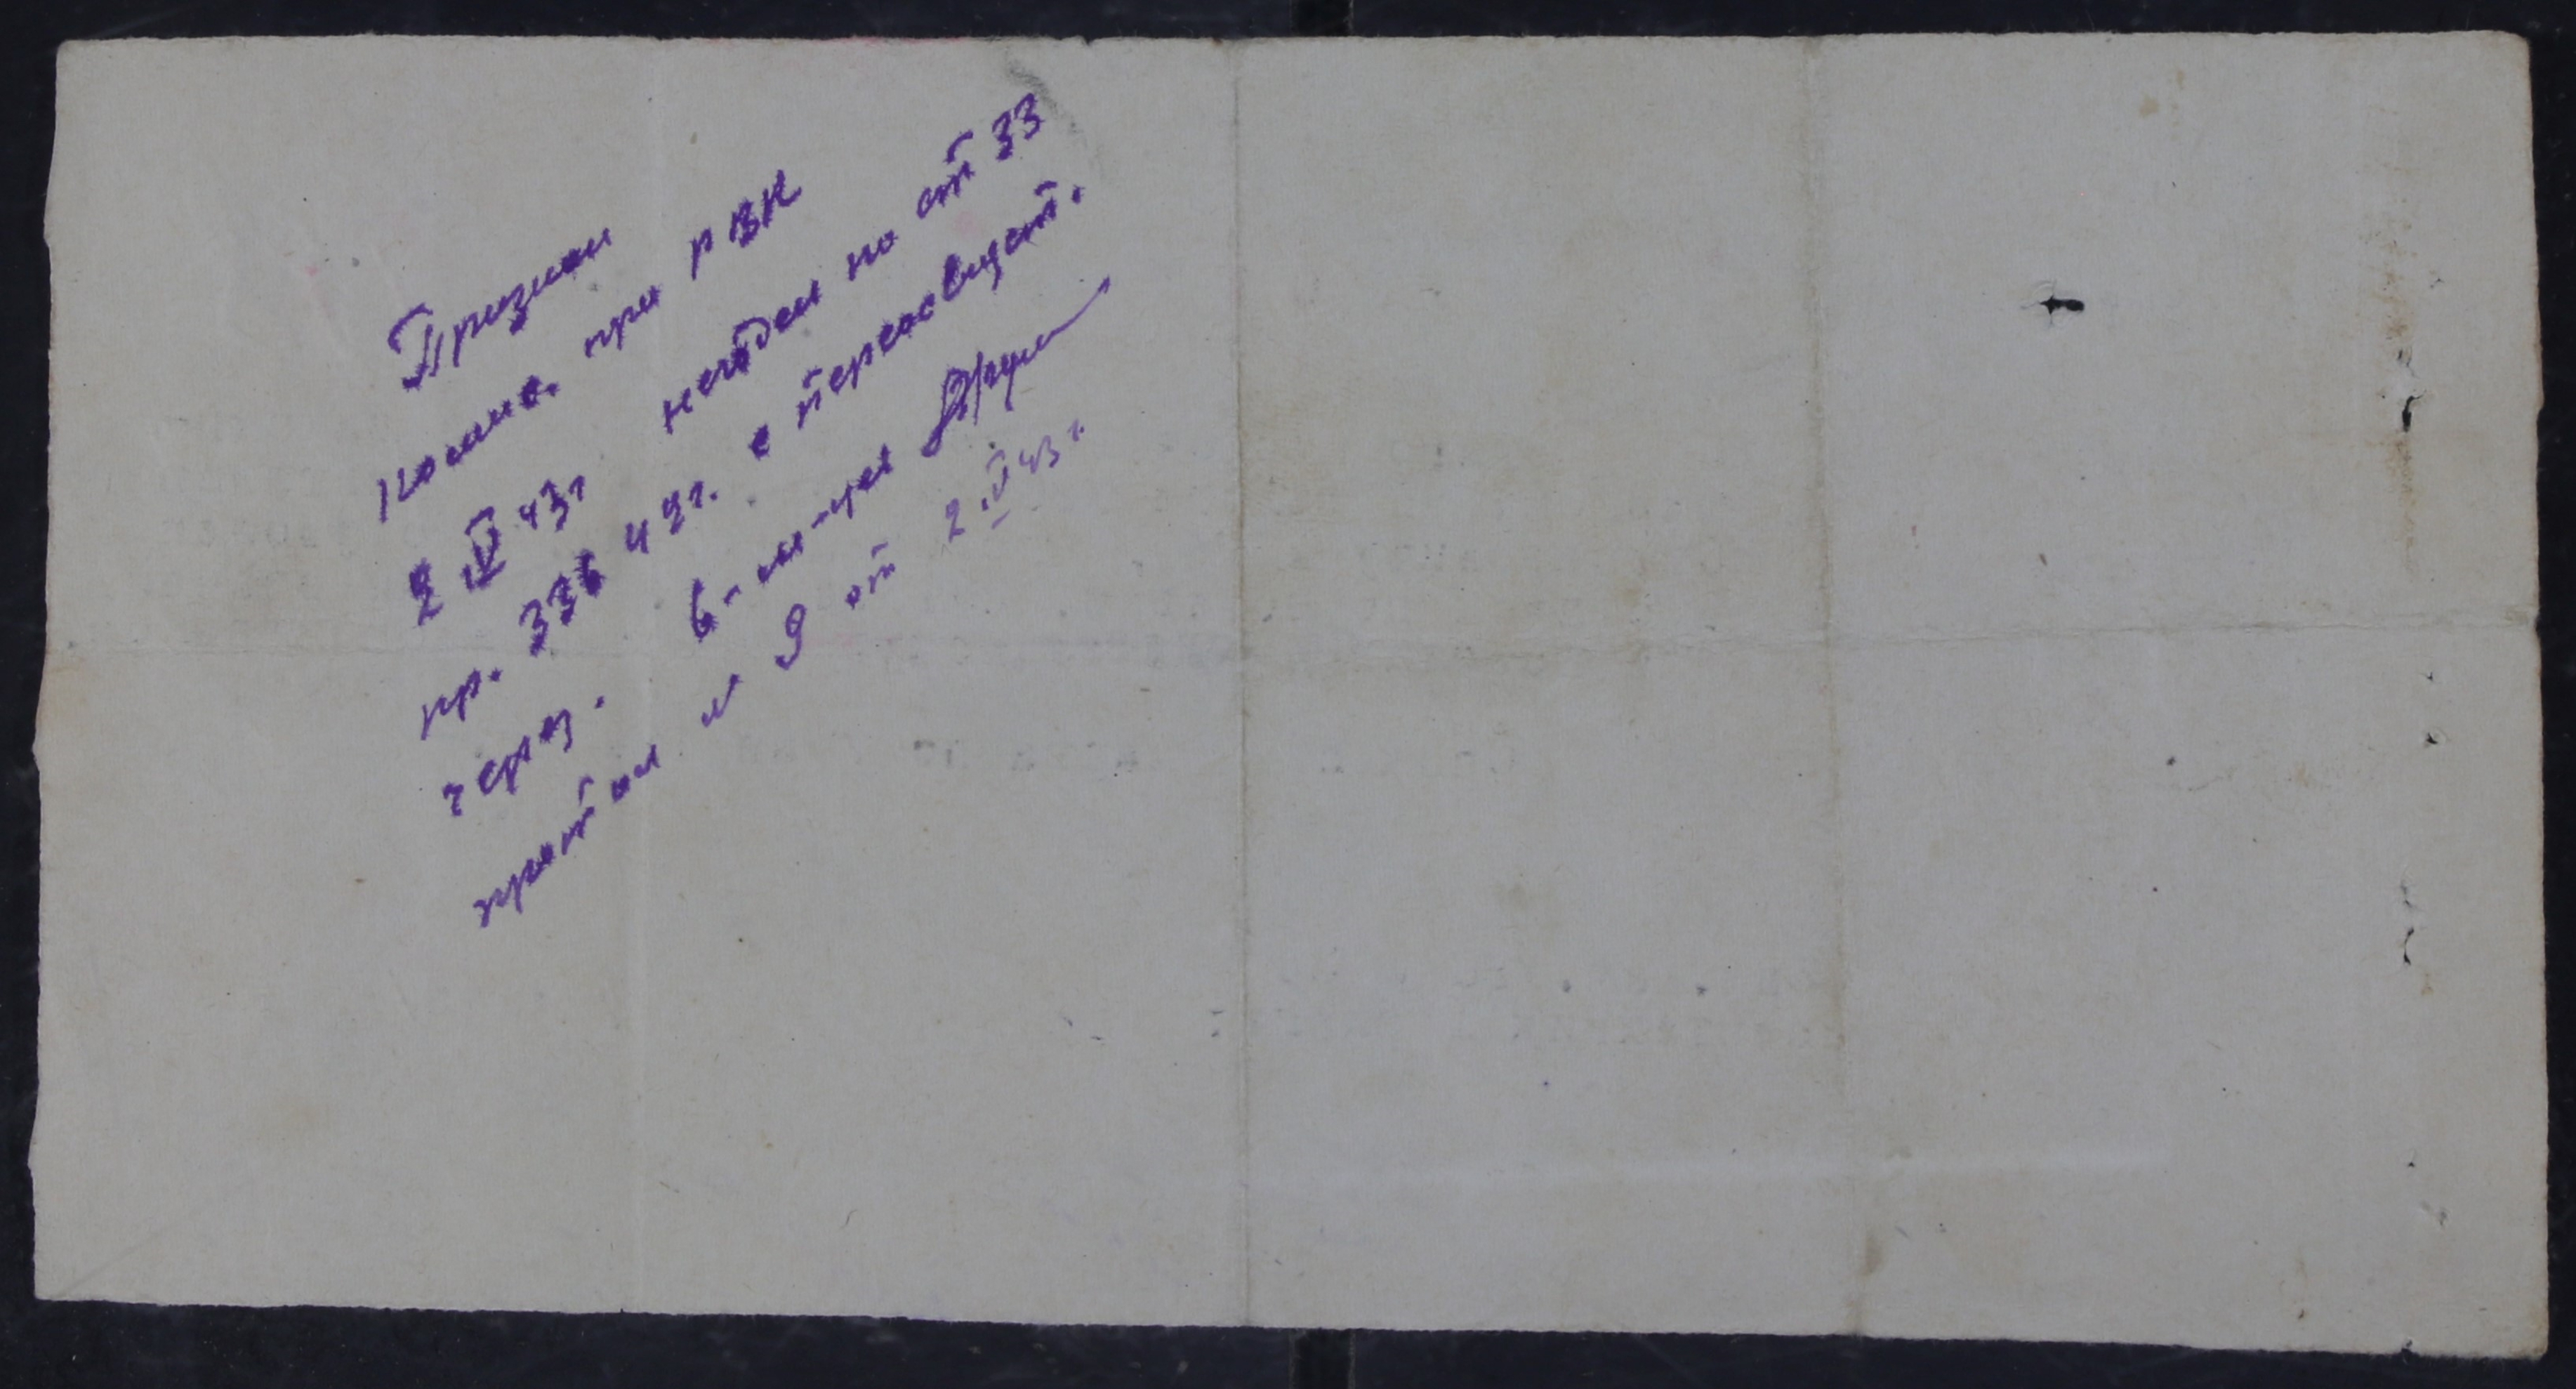 Признан
комис. при РВК
2 IV 43г негоден по ст 33
пр. 336 42г. с переосвидет.
через. 6-м-цев
протокол № 9 от 2.IV 43 г.